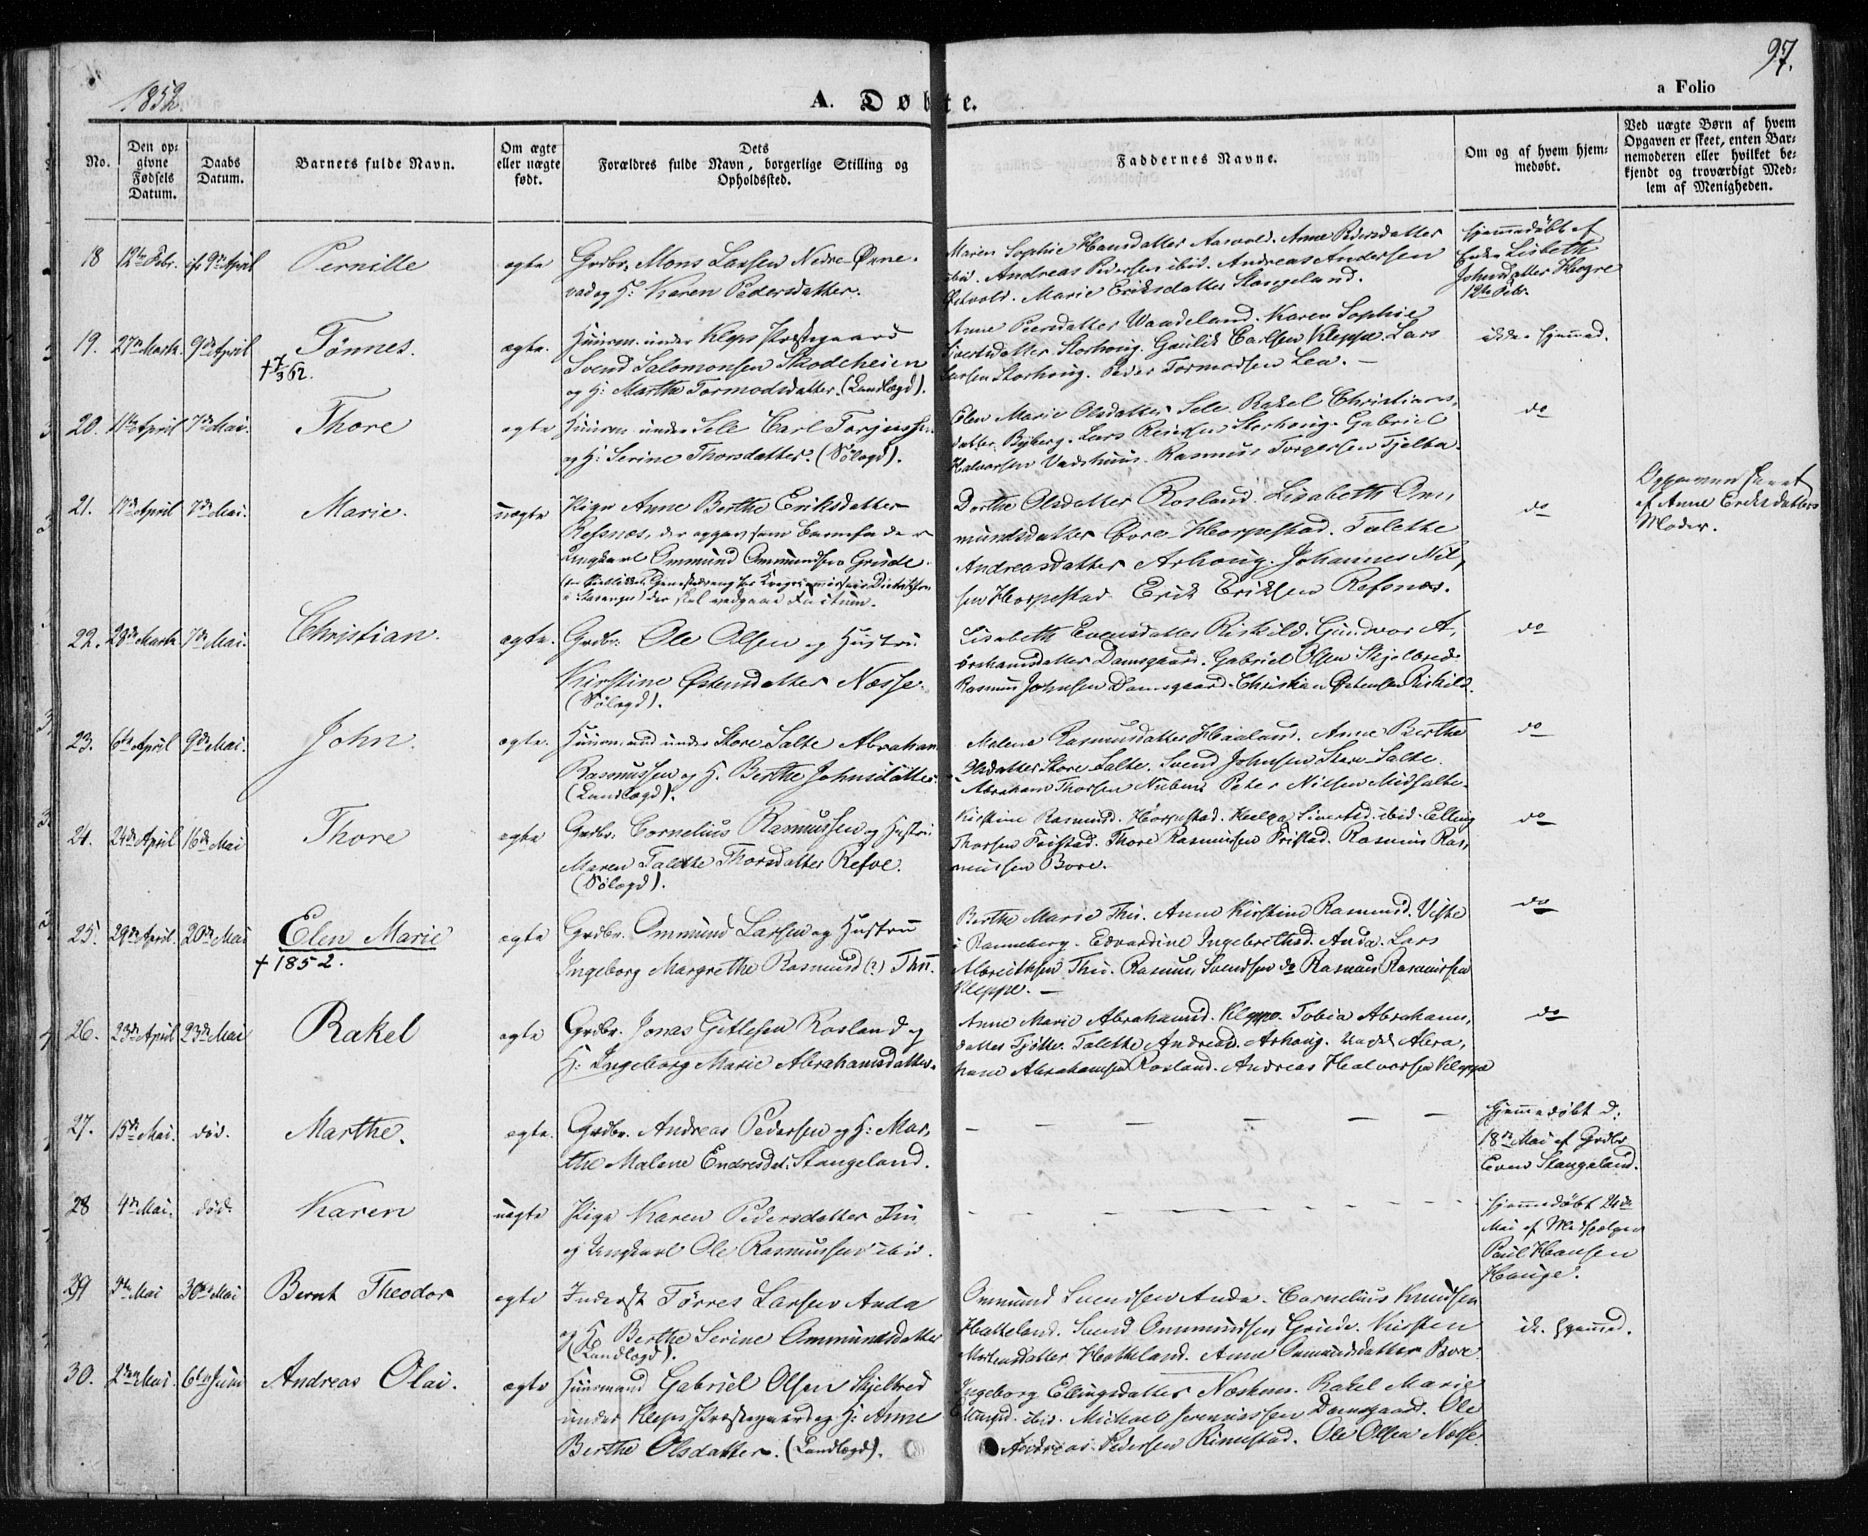 1852.
97.
A. Døbte.
a Folio
No.
Den op-
givne
Fødsels
Datum.
Daabs
Datum.
Barnets fulde Navn.
Om ægte
eller uægte
født.
Dets
Forældres fulde Navn, borgerlige Stilling og
Opholdssted.
Faddernes Navne.
Om og af hvem hjem-
medøbt.
Ved uægte Børn af hvem
Opgaven er skeet, enten Bar-
nemoderen eller hvilket be-
kjendt og troværdigt Med-
lem af Menigheden.
18 12te Febr. 9de April Pernille ægte
Grdbr. Mons Larsen Nedre Øxne-
vad og H: Karen Pedersdatter.
Maren Sophie Hansdatter Aarvold. Anne Pedersdatter
ibid. Andreas Pedersen ibid. Andreas Andersen
Marie Eriksdatter Stangeland.
Hjemmedøbt af
Enke Lisbeth
Johnsdatter
12te Febr.
19. 27de Marts 9de April Tønnes. ægte.
† 7/3 62.
Huusm. under Kleps Præstegaard
Svend Salomonsen Skodeheien
og H: Marthe Tormodsdatter. (Landlægd).
Anne Peersdatter Vaadeland. Karen Sophie
Sivertsdatter Storhoug. Gaulik Carlsen Kleppe. Lars
Larsen Storhoug. Peder Tormodsen Lea. —
ikke hjemmed.
20. 11te April 7de Mai. Thore ægte
Huusm. under Sele Carl Torjussen
og H: Serine Thorsdatter. (Sølægd).
Elen Marie Olsdatter Sele. Rakel Christians-
datter Byberg. Lars Storhoug. Gabriel
Halvorsen Vadshuus. Rasmus Torgersen Tjelta.
do
21. 17de April 7de Mai. Marie. uægte
Pige Anne Berthe Eriksdatter
Refsnæs, der opgav som Barnefader
Ungkarl Ommund Ommundsen Grude.
i Stavanger) der skal vedgaae Factum.
Dorthe Olsdatter Rosland. Lisabeth Om-
mundsdatter Bore. Horpestad. Talette
Andreasdatter Arhoug. Johannes Nil-
sen Horpestad. Erik Eriksen Refsnæs.
do
Opgaven skeet
af Anne Eriksdatters
Moder.
22. 29de Marts 7de Mai. Christian. ægte.
Grdbr. Ole Olsen og Hustru
Kirstine Østensdatter Næsse.
(Sølægd).
Lisabeth Evensdatter Riskild. Gundvor A-
brahamsdatter Damsgaard. Gabriel Olsen Skjelbred.
Rasmus Johnsen Damsgaard. Christian Østensen Riskild.
do
23. 6te April 9de Mai. John. ægte.
Huusmand under Store Salte Abraham
Rasmussen og H. Berthe Johnsdatter.
(Landlægd).
Malene Rasmusdatter Haaland. Anne Berthe
Olsdatter Store Salte. Svend Johnsen Store Salte.
Abraham Thorsen Peter Nilsen Midsalte.
do
24. 24de April 16de Mai Thore ægte
Grdbr. Cornelius Rasmussen og Hustru
Maren Talette Thorsdatter Refve.
(Sølægd).
Kirstine Rasmusd. Horpestad. Helga Sivertsd. ibid. Elling
Thorsen Friestad. Thore Rasmussen Fristad. Rasmus Ras-
mussen Bore.
do
25. 29de April 20de Mai Elen Marie ægte
† 1852.
Grdbr. Ommund Larsen og Hustru
Ingeborg Margrethe Rasmusd (?) Thu.
Berthe Marie Thu. Anne Kirstine Rasmusd. Viste
i Ranneberg. Edvardine Ingebrethsd. Anda. Lars
Albreethsen Thu. Rasmus Svendsen do Rasmus Rasmussen
Kleppe. —
do
26. 23de April 23de Mai Rakel ægte
Grdbr. Jonas Gitlesen Rosland og
H: Ingeborg Marie Abrahamsdatter.
Anne Marie Abrahamsd. Kleppe. Tobia Abrahams-
datter Tjøtte. Talette Andreasd. Arhoug. Abra-
ham Abrahamsen Rosland. Andreas Halvorsen Kleppe
do
27. 15de Mai. død. Marthe. ægte.
Grdbr. Andreas Pedersen og H: Mar-
the Malene Endresdat. Stangeland.
Hjemmedøbt d:
18de Mai af Grdbr.
Even Stangeland.
28 4de Mai. død. Karen uægte
Pige Karen Pedersdatter Thu
og Ungkarl Ole Rasmussen ibid.
Hjemmedøbt 24de
Mai af Medhjelper
Poul Hansen
Hauge.
29 3de Mai 30te Mai Bernt Theodor ægte
Inderst Tørres Larsen Anda
og H. Berthe Serine Ommundsdatter
(Landlægd).
Ommund Svendsen Anda. Cornelius Knudsen
Hatteland. Svend Ommundsen Grude. Kirsten
Mortensdatter Hatteland. Anne Ommundsdatter Bore
ik. hjemmed.
30. 2den Mai. 6te Juni Andreas Olai. ægte
Huusmand Gabriel Olsen Skjelbred
under Kleps Præstegaard og H: Anne
Berthe Olsdatter. (Landlægd).
Ingeborg Ellingsdatter Næshuus. Rakel Marie
ibid. Michael Jeremiassen Damsgaard. Ole
Andreas Pedersen Rimestad. Ole Olsen Næsse.